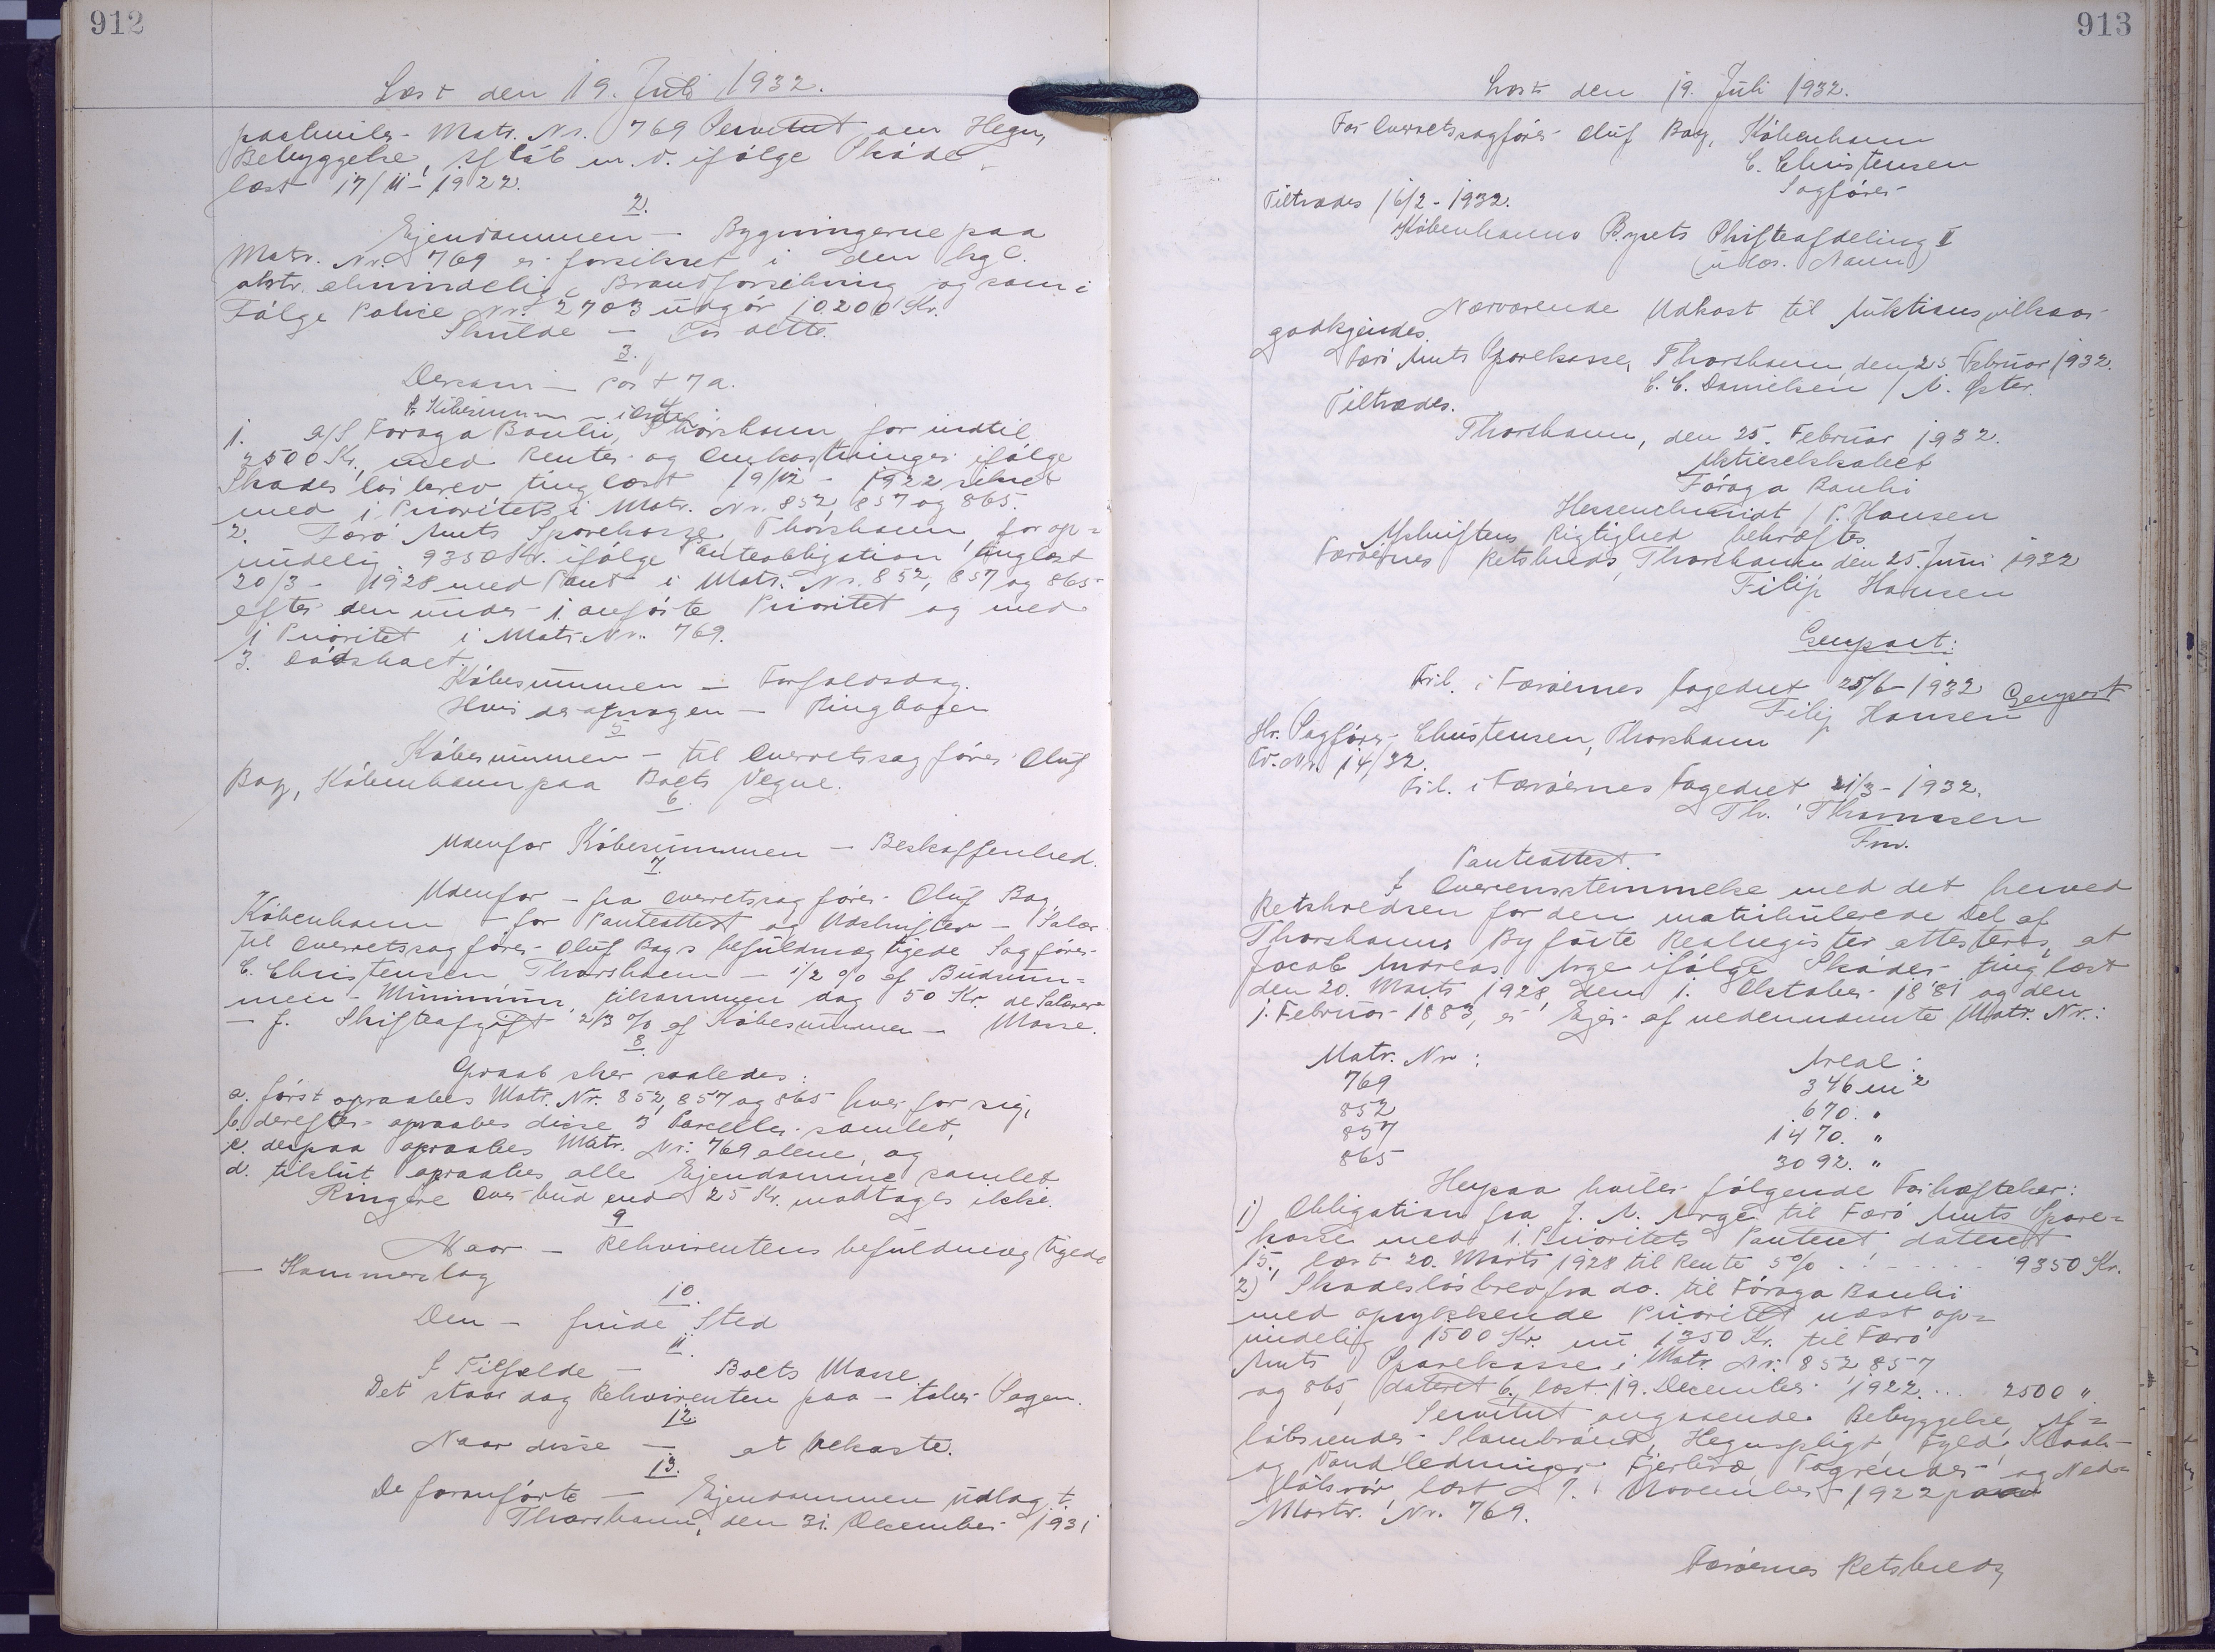 912
Læst den 19. Juli 1932.
paahviler Matr. Nr. 769 Servitut om Hegn,
Bebyggelse, Afløb m. v. ifølge Skøde
læst 17/11-1922.
2.
Ejendommen - Bygningerne paa
Matr. Nr. 769 er forsikret i den kgl.
oktr. almindelig Brandforsikring og som i
Følge Police Nr. 2703 udgør 10200 Kr.
Skulde - for dette.
3.
Dersom - Post 7a.
4.
Af Købesummen -
1. A/S Føroya Banki, Thorshavn for indtil
2500 Kr. med Renter og Omkostninger ifølge
Skadesløsbrev tinglæst 19/12 - 1922 sikret
med 1. Prioritet i Matr. Nr. 852, 857 og 865.
2. Færø Amts Sparekasse, Thorshavn, for op=
rindelig 9350 Kr. ifølge Panteobligation tinglæst
20/3 - 1928 med Pant i Matr. Nr. 852, 857 og 865
efter den under 1. anførte Prioritet og med
1 Prioritet i Matr. Nr. 769.
3. Dødsboet.
Købesummen - Forfaldsdag.
Hvis der spørges - Ringbøger
5
Købesummen - til Overretssagfører Oluf
Bay, København paa Boets Vegne.
6.
Udenfor Købesummen - Beskaffenhed.
7.
Udenfor - fra Overretssagfører Oluf Bay,
København - for Panteattest og Udskrifter - Salær
til Overretssagfører Oluf Bays befuldmægtigede Sagfører
C. Christensen Thorshavn - 1/2 % af Budsum=
men - Minimum tilsammen dog 50 Kr. de Salærer
- f. Skifteafgift 2/3 % af Købesummen - Masse.
8.
Opraab sker saaledes:
a. først opraabes Matr. Nr. 852, 857 og 865 hver for sig,
b. derefter opraabes disse 3 Parceller samlet,
c. derpaa opraabes Matr. Nr. 769 alene, og
d. tilslut opraabes alle Ejendomme samlet
Ringere Overbud end 25 Kr. modtages ikke.
9
Naar - Rekvirentens befuldmægtigede
- Hammerslag
10.
Den - finde Sted
11.
I Tilfælde - Boets Masse
Det staar dog Rekvirenten paa - taber Sagen.
12.
Naar disse - at bekoste.
13.
De foranførte - Ejendommen udlagt.
Thorshavn, den 31. December 1931
913
Læst den 19. Juli 1932.
For Overretssagfører Oluf Bay, København
C. Christensen
Sagfører
Tiltrædes 16/2 - 1932.
Københavns Byrets Skifteafdeling II
(ulæs. Navn)
Nærværende Udkast til Auktionsvilkaar
godkjendes.
Færø Amts Sparekasse, Thorshavn, den 25 Februar 1932.
C. C. Danielsen / A. Øster.
Tiltrædes.
Thorshavn, den 25. Februar 1932.
Aktieselskabet
Føroya Banki
Hessenschmidt / P. Hansen
Afskriftens Rigtighed bekræftes
Færøernes Retskreds, Thorshavn den 25. Juni 1932
Filip Hansen
Genpart:
Fril. i Færøernes Fogedret 25/6 - 1932
Genpart
Filip Hansen
Hr. Sagfører Christensen, Thorshavn
Fv. Nr. 14/32.
Fril. i Færøernes Fogedret 21/3 - 1932.
Th. Thomsen
Fm.
Panteattest.
I Overensstemmelse med det herved
Retskredsen for den matrikulerede Del af
Thorshavns By førte Realregister attesteres, at
Jacob Andreas Arge ifølge Skøder tinglæst
den 20. Marts 1928, den 1. Oktober 1881 og den
1. Februar 1883, er Ejer af nedennævnte Matr. Nr.:
Matr. Nr: Areal:
769 346 m²
852 670. "
857 1470. "
865 3092. "
Herpaa hviler følgende Forhæftelser:
1) Obligation fra J. A. Arge til Færø Amts Spare=
kasse med 1. Prioritets Panteret dateret
15., læst 20. Marts 1928 til Rente 5% . . - - - - 9350 Kr.
2) Skadesløsbrev fra do. til Føroya Banki
med oprykkende Prioritet næst op=
rindelig 1500 Kr. nu 1350 Kr. til Færø
Amts Sparekasse i Matr. Nr. 852 857
og 865, dateret 6., læst 19. December 1922 ... 2500 "
Servitut angaaende Bebyggelse, Af=
løbsrender Slambrønd, Hegnspligt, Fyld, Kloak-
og Vandledninger Fjerkræ, Tagrender og Ned=
løbsrør, læst 17. November 1922 paa
Matr. Nr. 769.
Færøernes Retskreds,